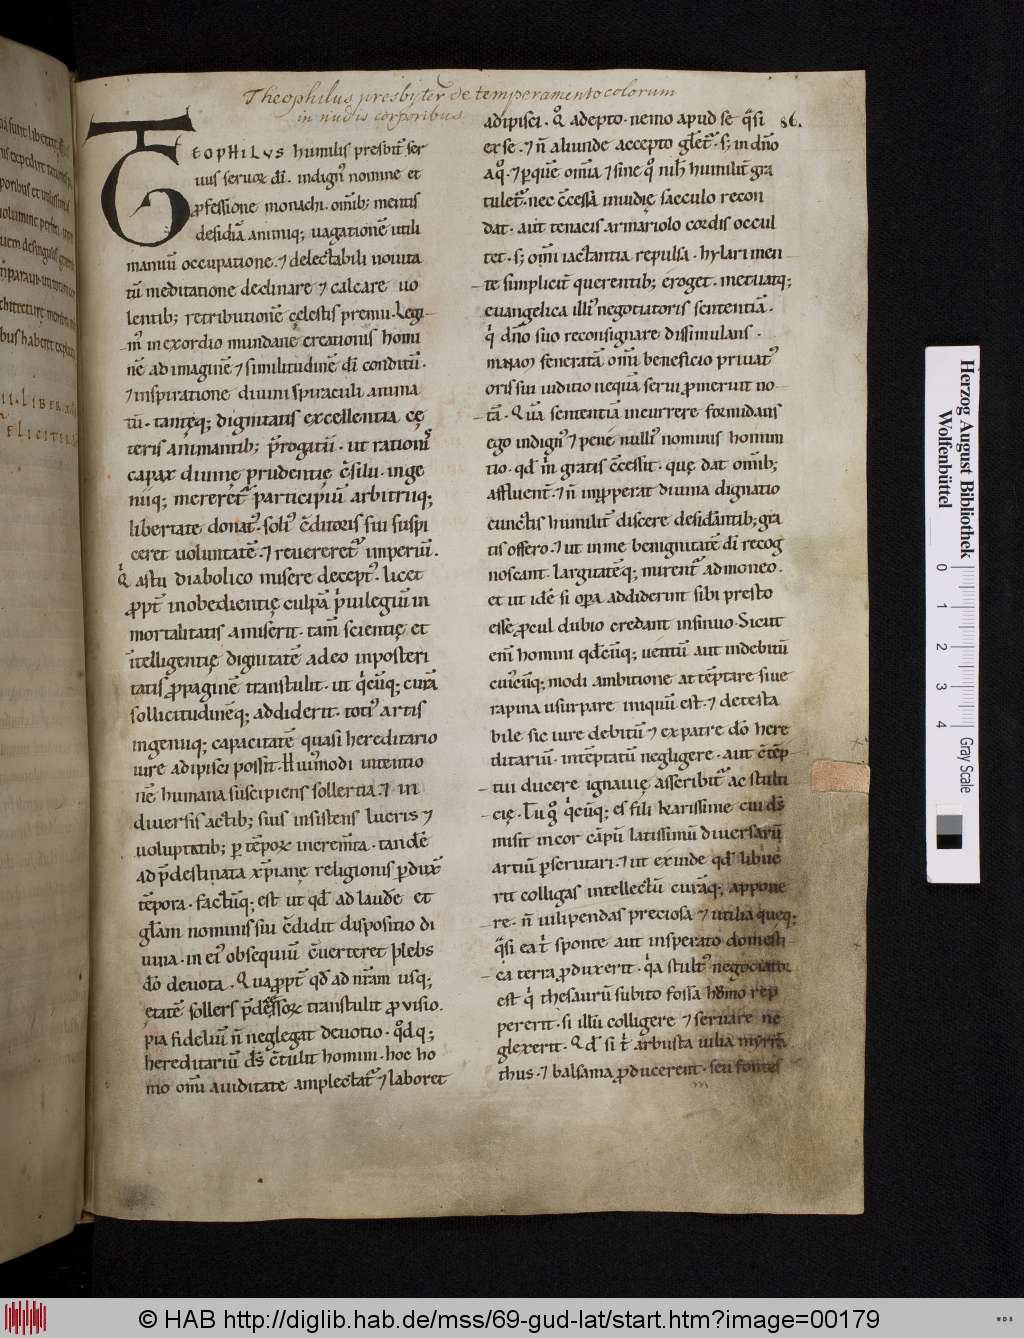 Theophilus presbyter de temperamento colorum
in nudis corporibus
86.
TEOPHILVS humilis presbiť ser
uus seruoꝝ dī. indignꝰ nomine et
ꝓfessione monachi. omīb; mentis
desidiā animiq; uagationē utili
manuū occupatione. ⁊ delectabili nouita
tū meditatione declinare ⁊ calcare uo
lentib; retributionē cęlestis premii. Legi
mꝰ in exordio mundane creationis homi
nē ad imaginē ⁊ similitudinē dī conditū.
⁊ inspiratione diuini spiraculi anima
tū. tantęq; dignitatis excellentia cę
teris animantib; p̄rogatū. ut rationiꝰ
capax diuinę prudentię c̄silii. inge
niiq; mereretꝰ participiū arbitriiq;
libertate donatꝰ. soliꝰ c̄ditoris sui suspi
ceret uoluntatē. ⁊ reuereretꝰ imperiū.
Qͥ astu diabolico misere deceptꝰ. licet
ꝓpť inobedientię culpā pͥuilegiū in
mortalitatis amiserit. tam̄ scientię et
īntelligentię dignitatē adeo in posteri
tatis ꝓpaginē transtulit. ut qͥcūq; curā
sollicitudinēq; addiderit. totiꝰ artis
ingeniiq; capacitatē quasi hereditario
iure adipisci possit. Huiꝰmodi intentio
nē humana suscipiens sollertia. ⁊ in
diuersis actib; suis insistens lucris ⁊
uoluptatib; ꝑ tēpoꝝ increm̄ta. tandē
ad p̄destinata xp̄ianę religionis ꝑduxͭ
tēpora. factūq; est ut qd̄ ad laudē et
gl̄am nominis sui c̄didit dispositio di
uina. in eiꝰ obsequiū c̄uerteret plebs
dō deuota. Quaꝓpť qd̄ ad nr̄am usq;
ętatē sollers p̄dęssoꝝ transtulit ꝓuisio.
pia fideliū n̄ neglegat deuotio. qͦdq;
hereditariū dꝰ c̄tulit homini. hoc ho
mo omī auiditate amplectatꝰ ⁊ laboret
adipisci. Qͦ adepto. nemo apud se qͣsi
ex se. ⁊ n̄ aliunde accepto gl̄etꝰ. s; in dn̄o
a qͦ. ⁊ ꝑ quē om̄ia ⁊ sine qͦ nih̄ humiliť gra
tuletꝰ. nec c̄cessa inuidię sacculo recon
dat. aut tenacis armariolo cordis occul
tet. s; omī iactantia repulsa. hylari men
te simpliciť querentib; eroget. metuatq;
euangelica illiꝰ negotiatoris sententiā.
qͥ dn̄o suo reconsignare dissimulans.
mnaō feneratā omī beneficio priuatꝰ
oris sui iuditio nequā serui ꝓmeruit no
tā. Quā sententiā incurrere formidans
ego indignꝰ ⁊ pene nulliꝰ nominis homun
tio. qd̄ mͥ gratis c̄cessit. quę dat omīb;
affluenť. ⁊ n̄ imꝓperat diuina dignatio
cunctis humiliť discere desidantib; gra
tis offero. ⁊ ut in me benignitatē dī recog
noscant. largitatēq; mirentꝰ admoneo.
et ut idē si opa addiderint sibi presto
esse ꝓcul dubio credant insinuo. Sicut
enī homini qd̄cūq; uetitū aut indebitū
cuiꝰcūq; modi ambitione attēptare siue
rapina usurpare iniquū est. ⁊ detesta
bile sic iure debitū ⁊ ex patre dō here
ditariū. intēptatū negligere. aut c̄tēp
tui ducere ignauię asscribitꝰ ac stulti
cię. Tu gͦ qͥcūq; es fili karissime cui dꝰ
misit in cor cāpū latissimū diuersarū
artiū ꝑscrutari. ⁊ ut exinde qd̄ libue
rit colligas intellectū curāq; appone
re. n̄ uilipendas preciosa ⁊ utilia queq;
qͣsi ea tͥ sponte aut insperato domesti
ca terra ꝓduxerit. qͣa stultꝰ negociator
est qͥ thesaurū subito fossa homo rep
pererit. si illū colligere ⁊ seruare ne
glexerit. Qd̄ si tͥ arbusta uilia myrrā
thus. ⁊ balsama ꝓducerent. seu fontes
Herzog August Bibliothek
Wolfenbüttel
0 1 2 3 4
Gray Scale
© HAB http://diglib.hab.de/mss/69-gud-lat/start.htm?image=00179